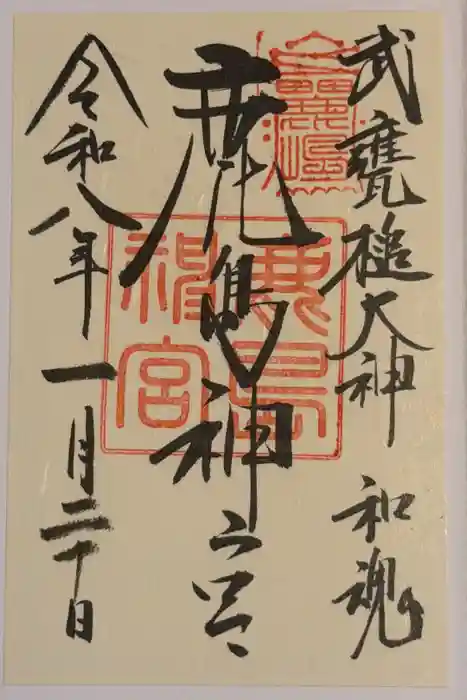 武甕槌大神 和魂
鹿島神宮
令和八年一月二十日
鹿島神宮